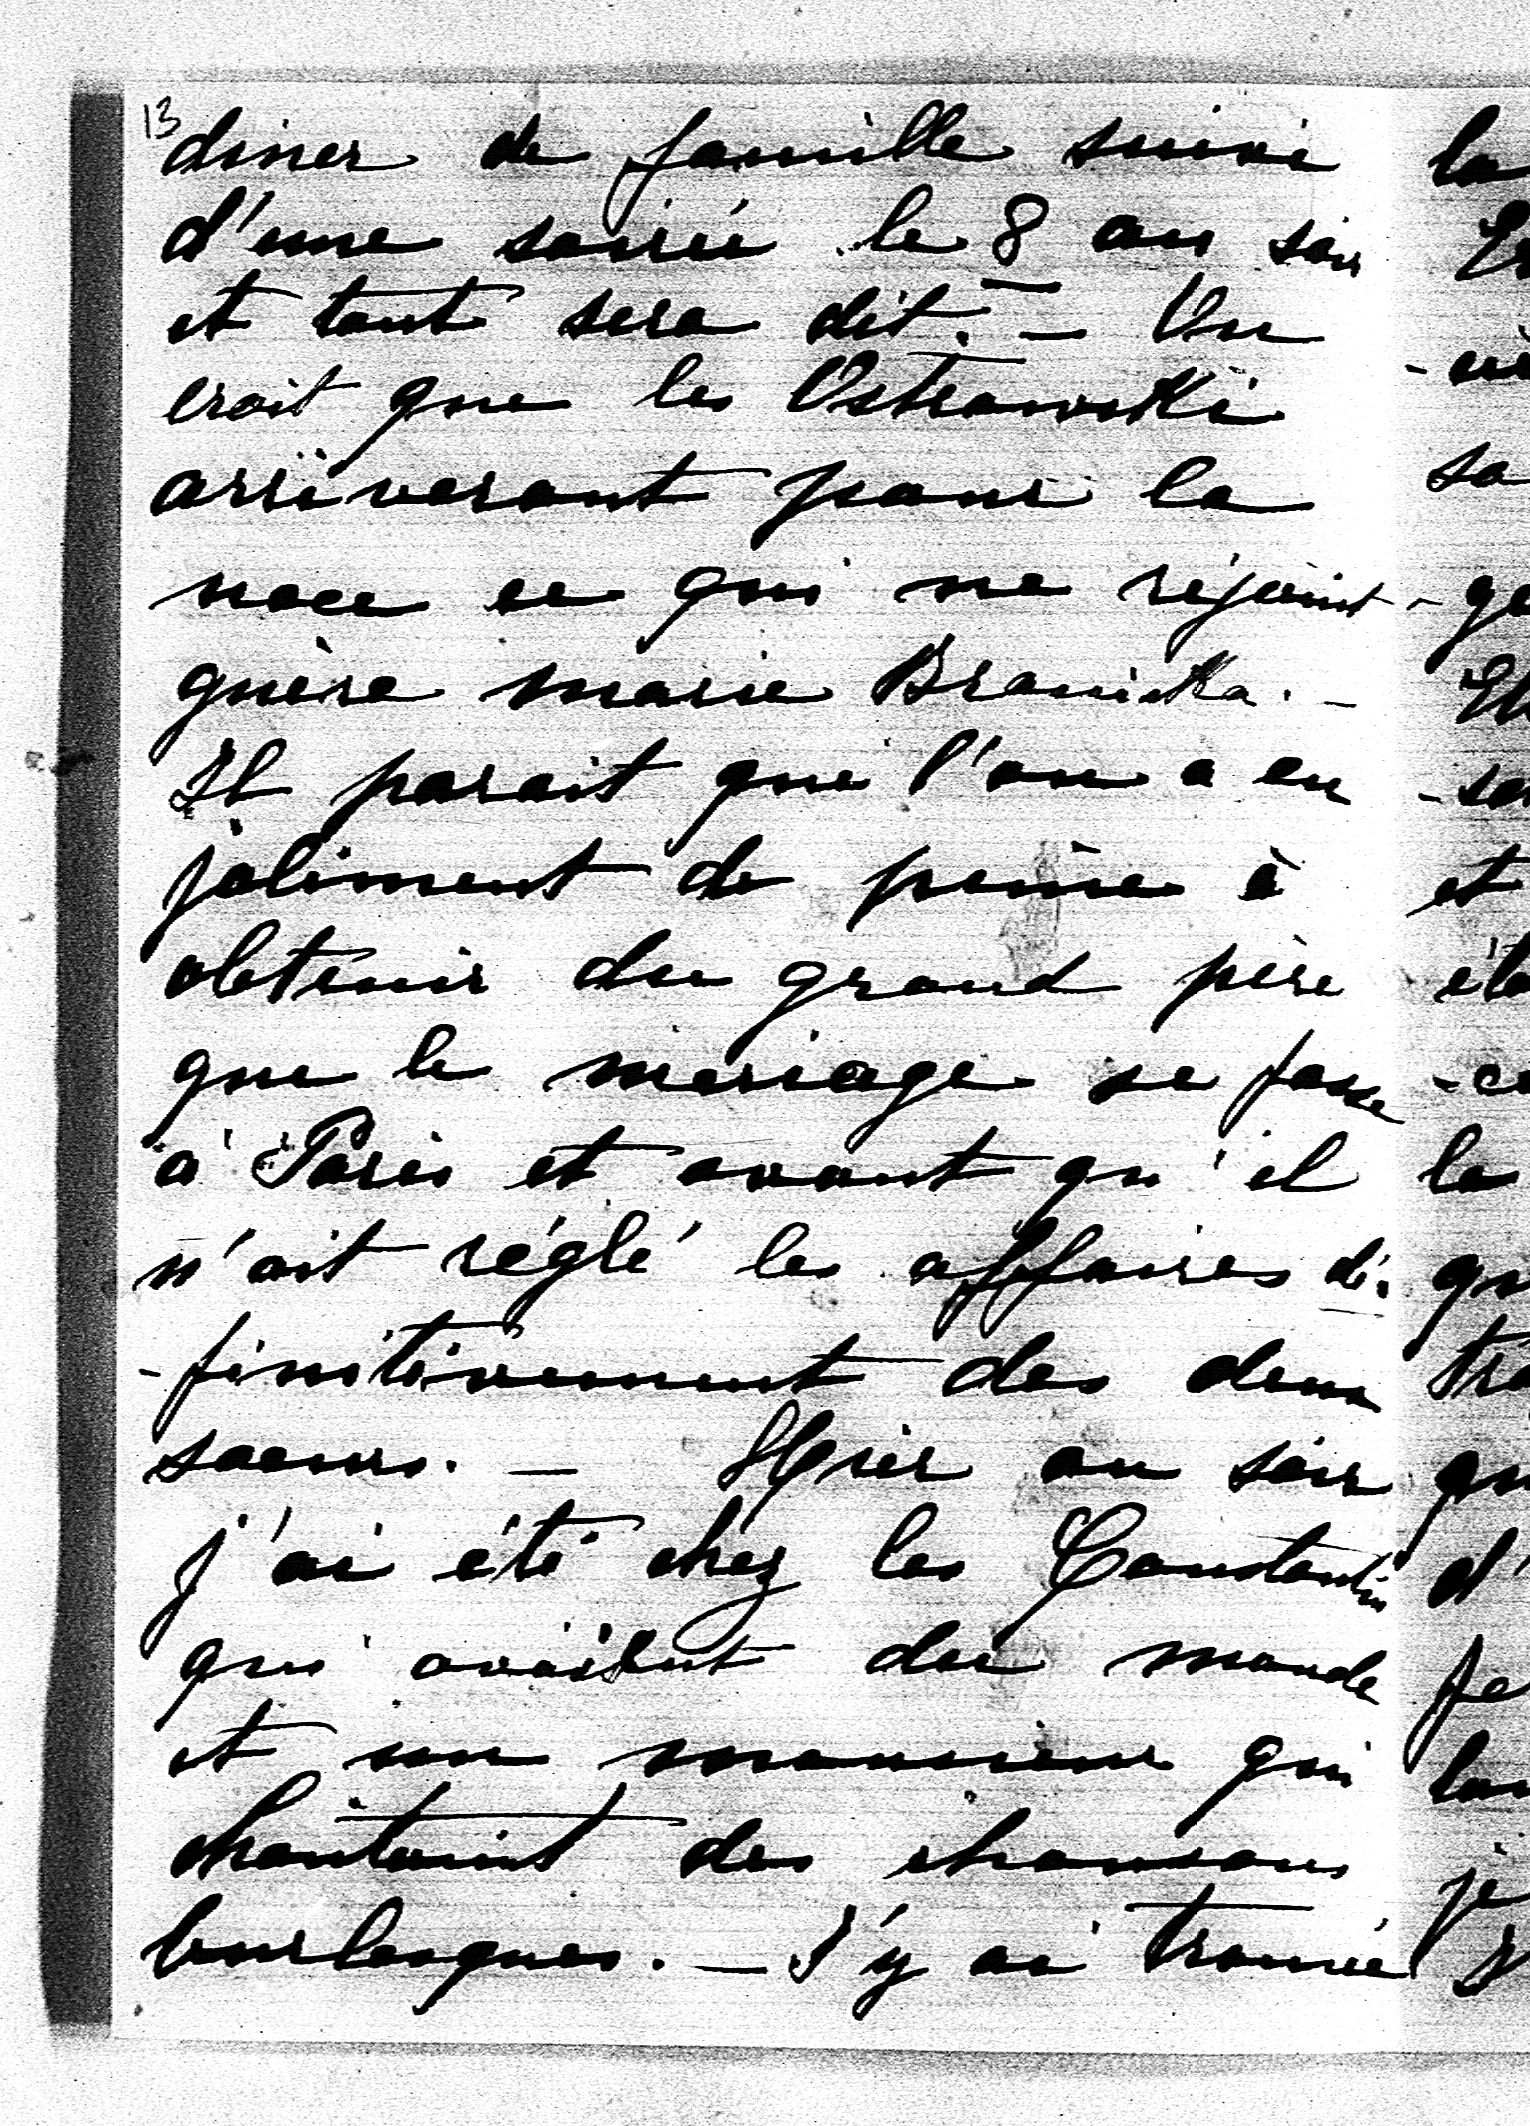 13
diner de famille suivi
d'une soirée le 8 au soir
et tout sera dit. — On
croit que les Ostrowski
arriveront pour la
noce ce qui ne réjouit
guère Marie Branicka. —
Il parait que l'on a eu
joliment de peine à
obtenir du grand père
que le mariage se fasse
à Paris et avant qu'il
n'ait réglé les affaires dé-
-finitivement des deux
soeurs. — Hier au soir
j'ai été chez les Constantin
qui avaient du monde
et un monsieur qui
chantait des chansons
burlesques. — J'y ai trouvé